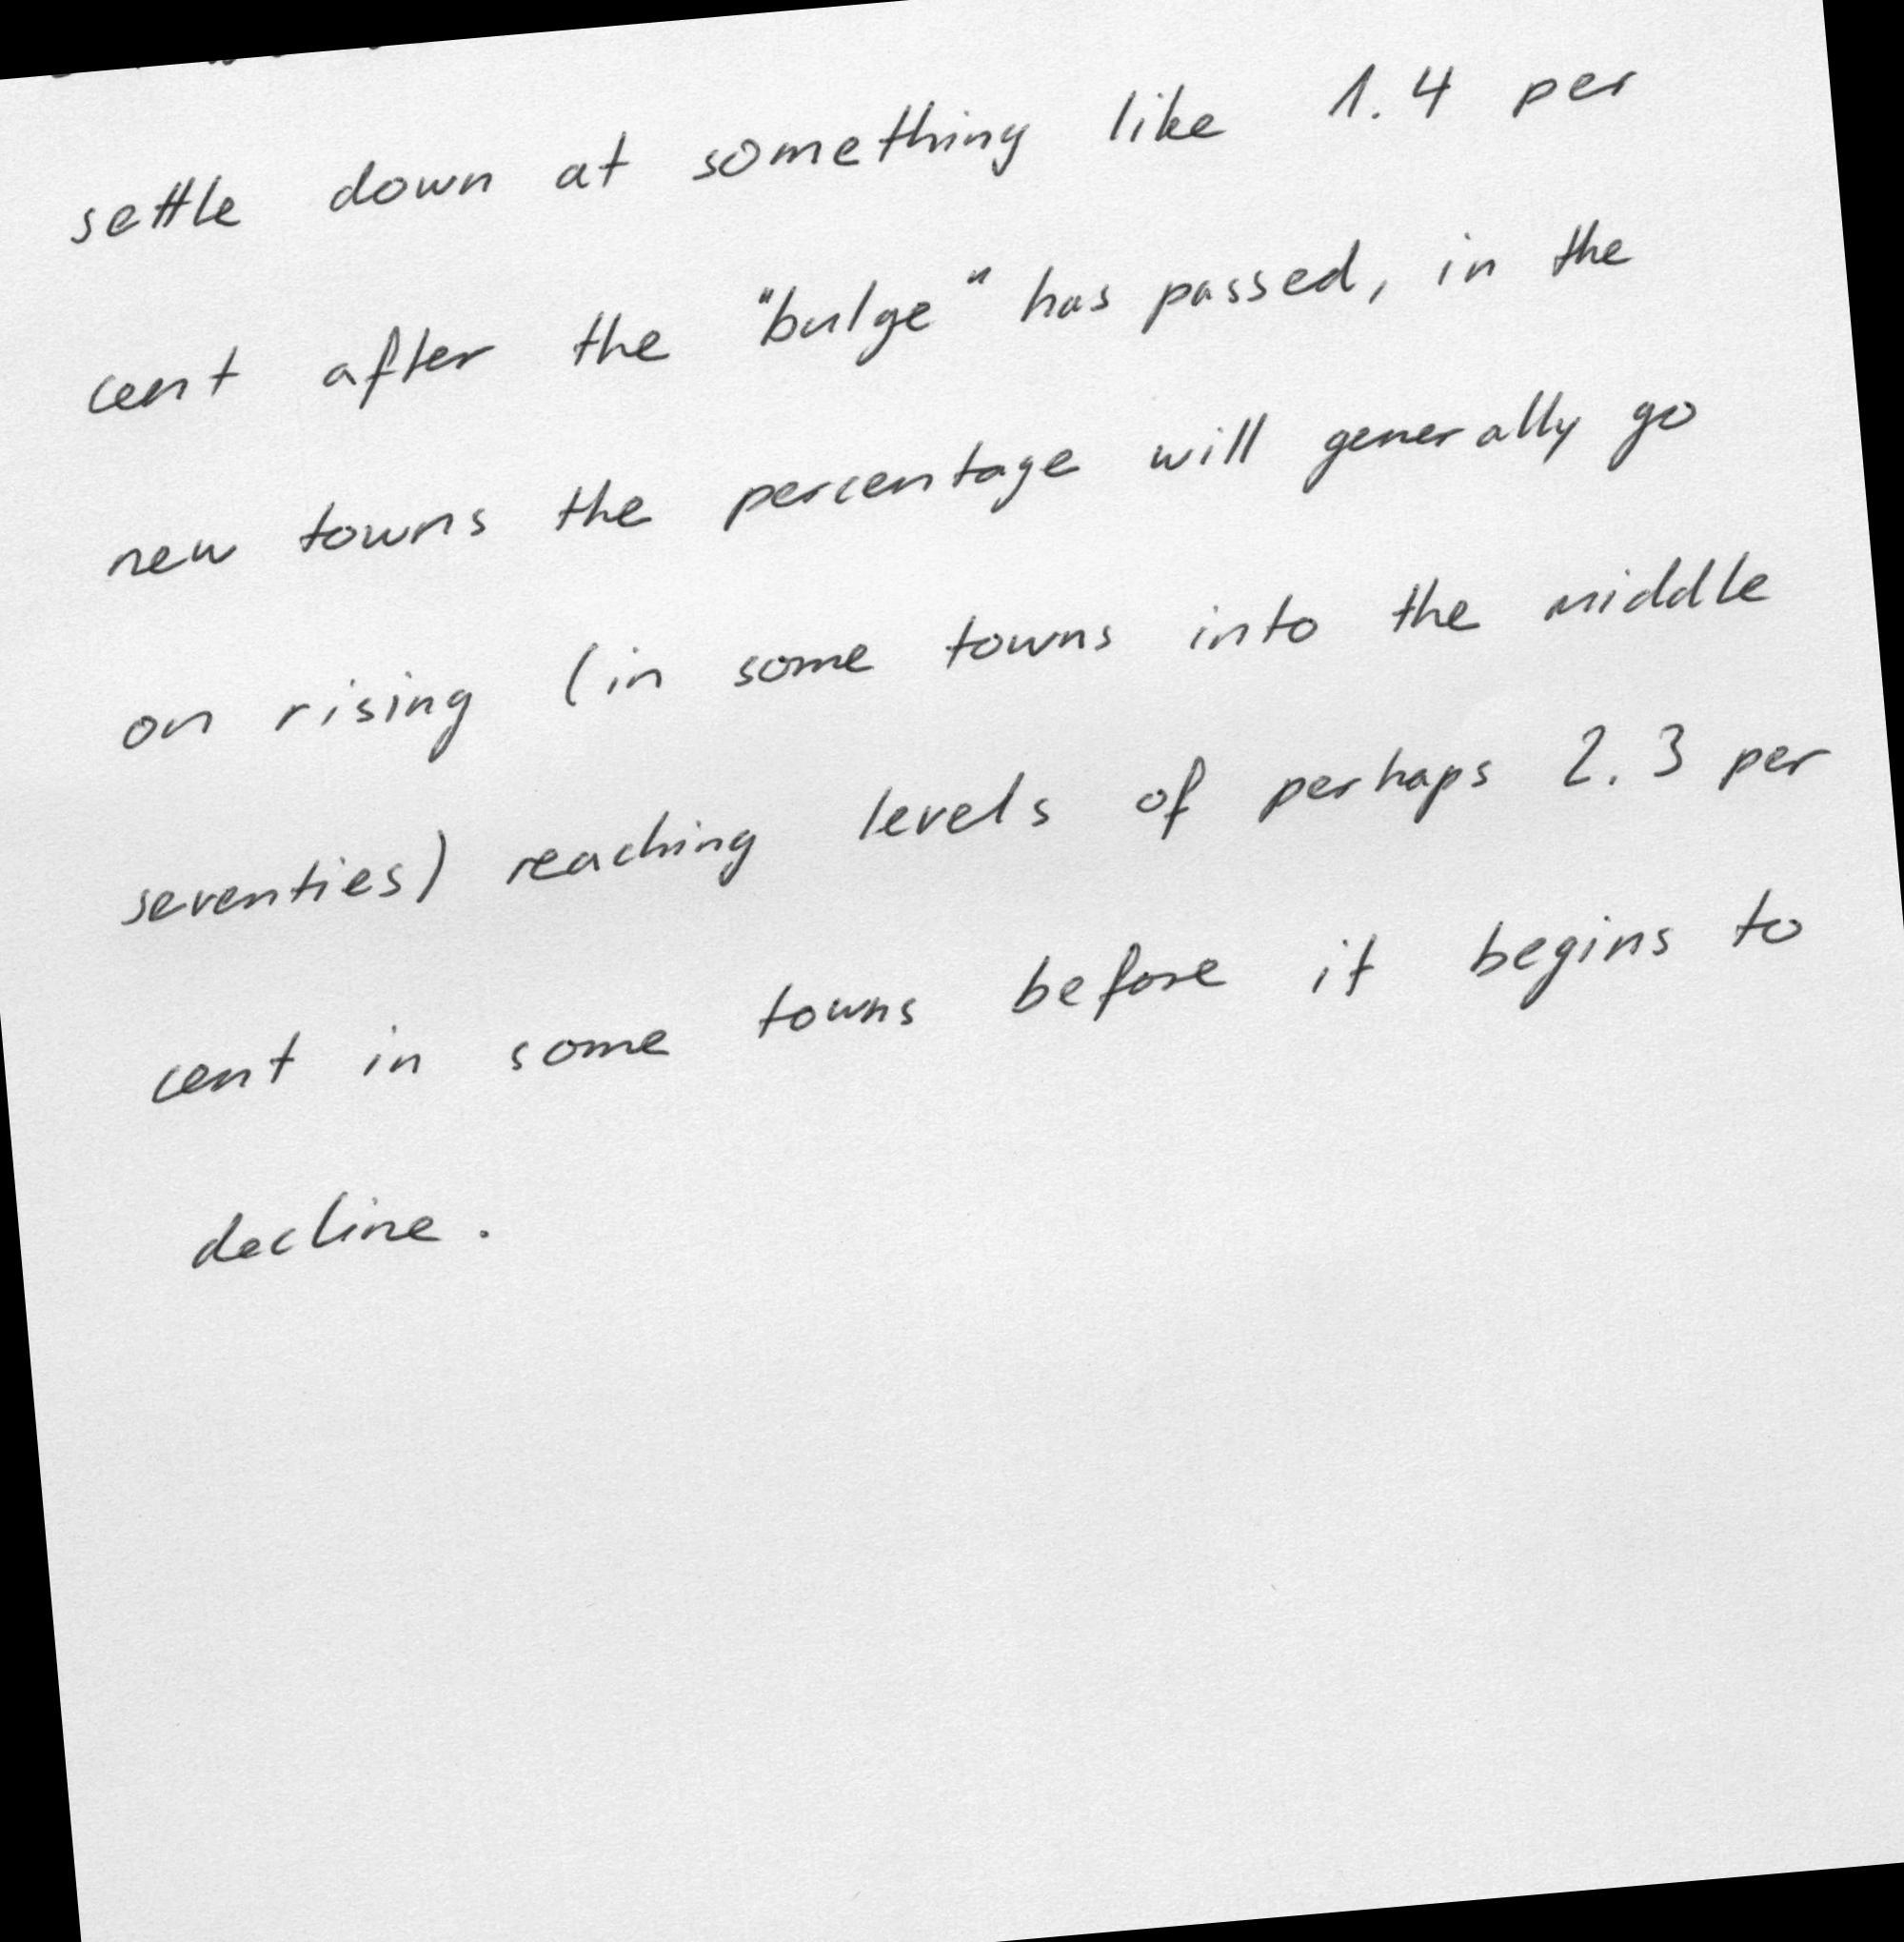 settle down at something like 1.4 per
cent after the "bulge" has passed, in the
new towns the percentage will generally go
on rising (in some towns into the middle
seventies) reaching levels of perhaps 2.3 per
cent in some towns before it begins to
decline.